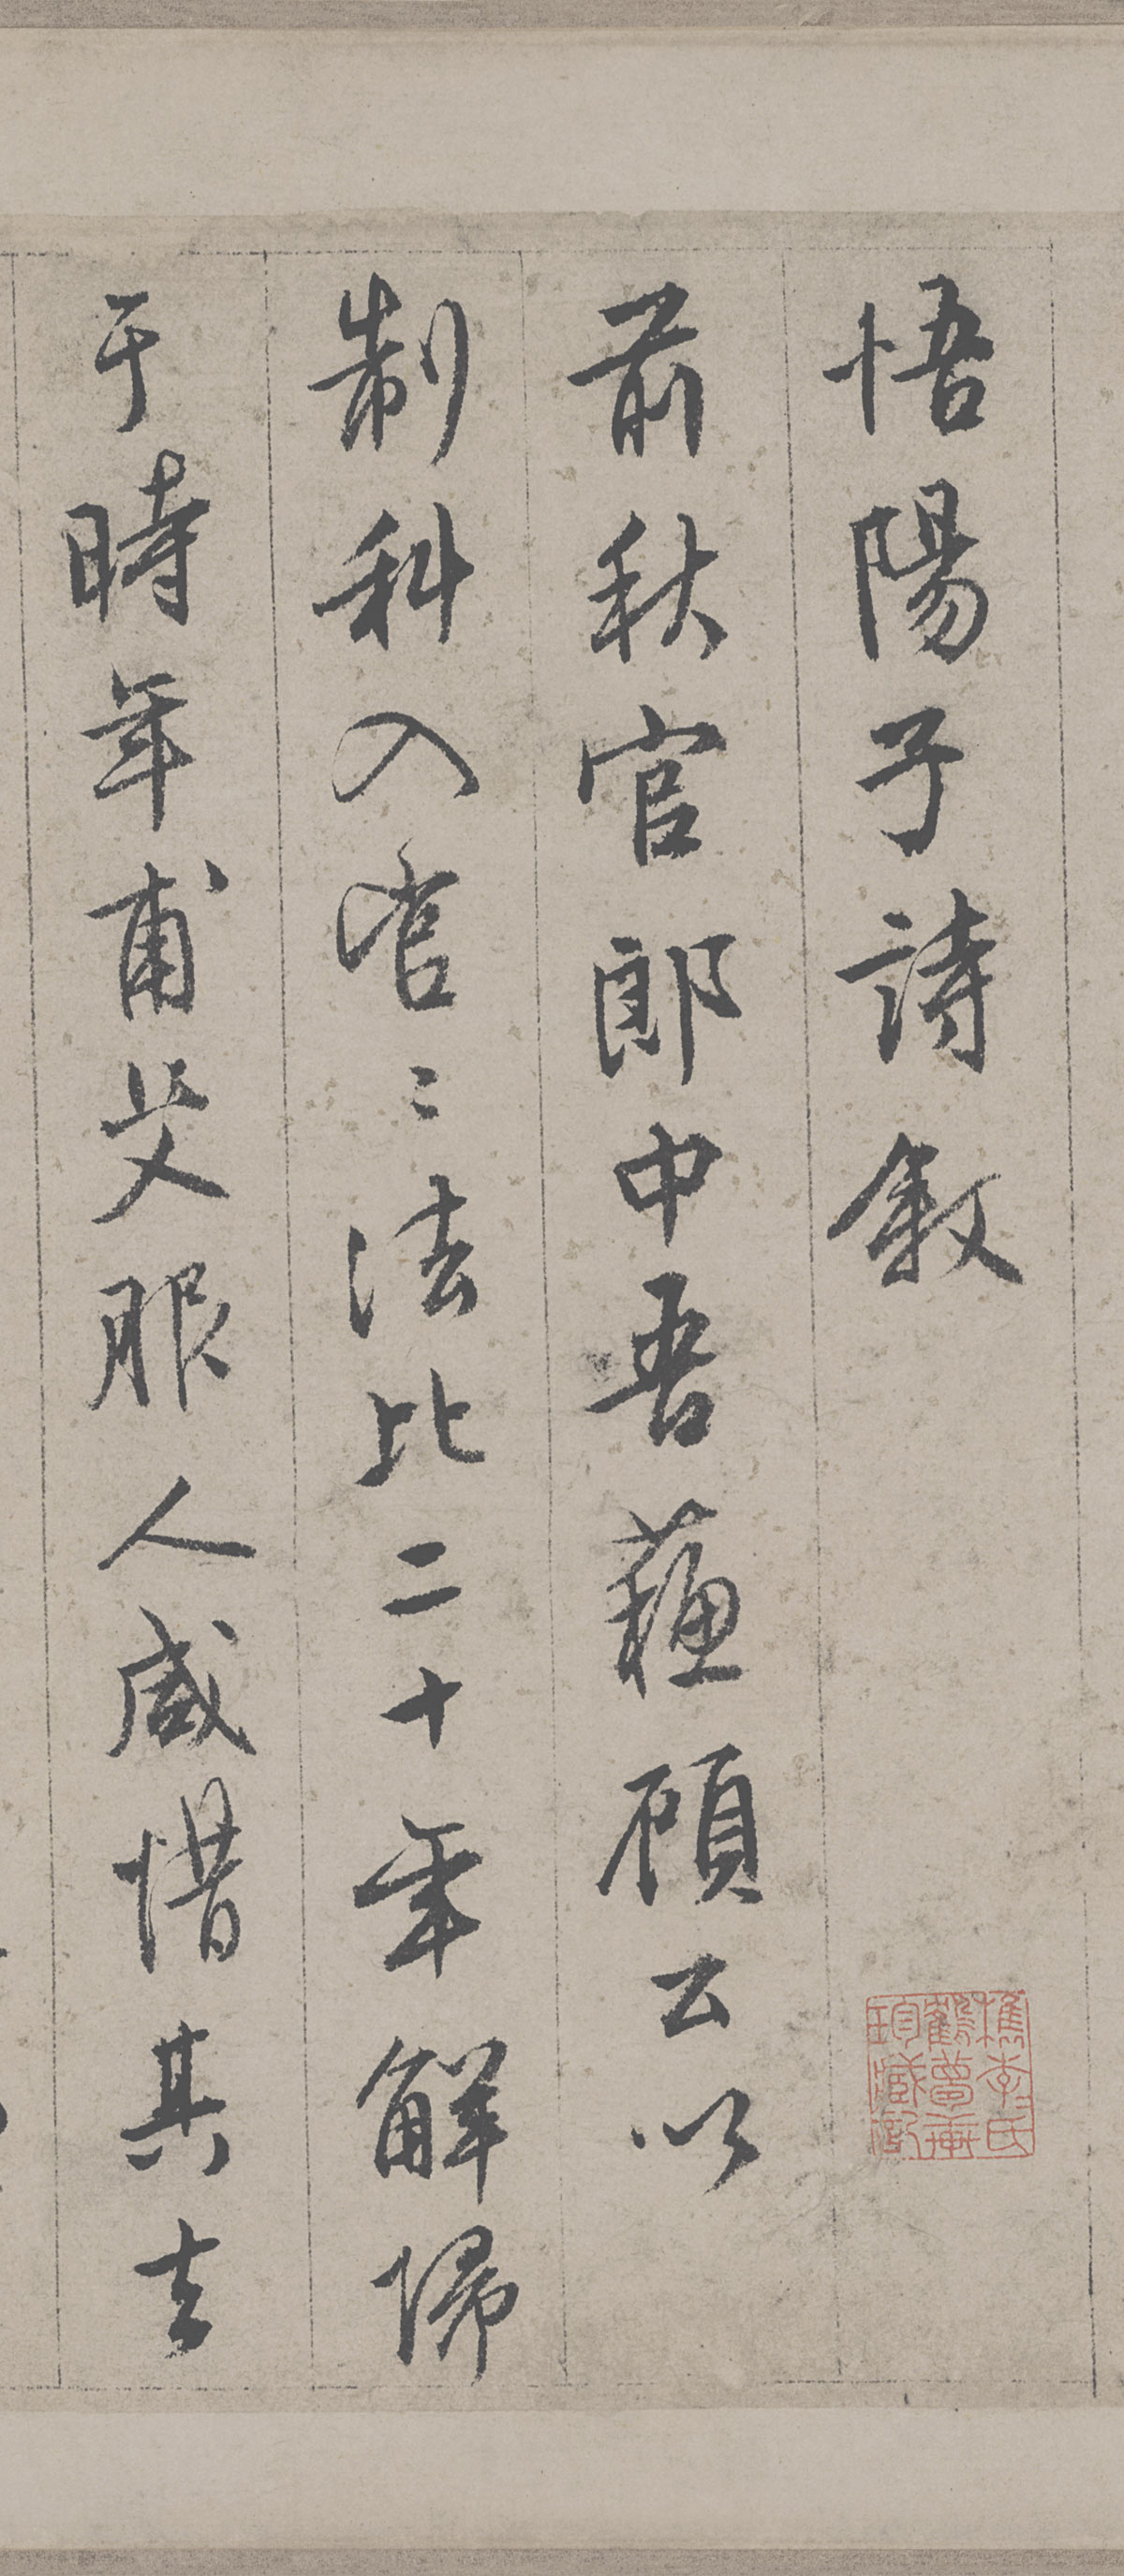 悟陽子詩敘
前秋官郎中吾蘇顧公以
制科入官〻法比二十年解歸
于時年甫艾服人咸惜其去
檇李氏
鶴夢軒
珍藏記